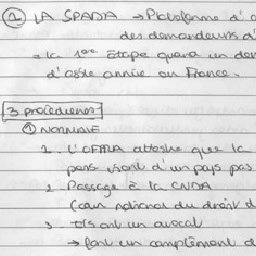 ② LA SPADA → Plateforme d'a
des demandeurs d'
→ la 1ère étape quand un de
d'asile arrive en France.
3 procédures
① NORMALE
1. L'OFPRA atteste que la
pers vient d'un pays pas
2. Passage à la CNDA
(cour national du droit d
3. Ils ont un avocat
→ font un complément d